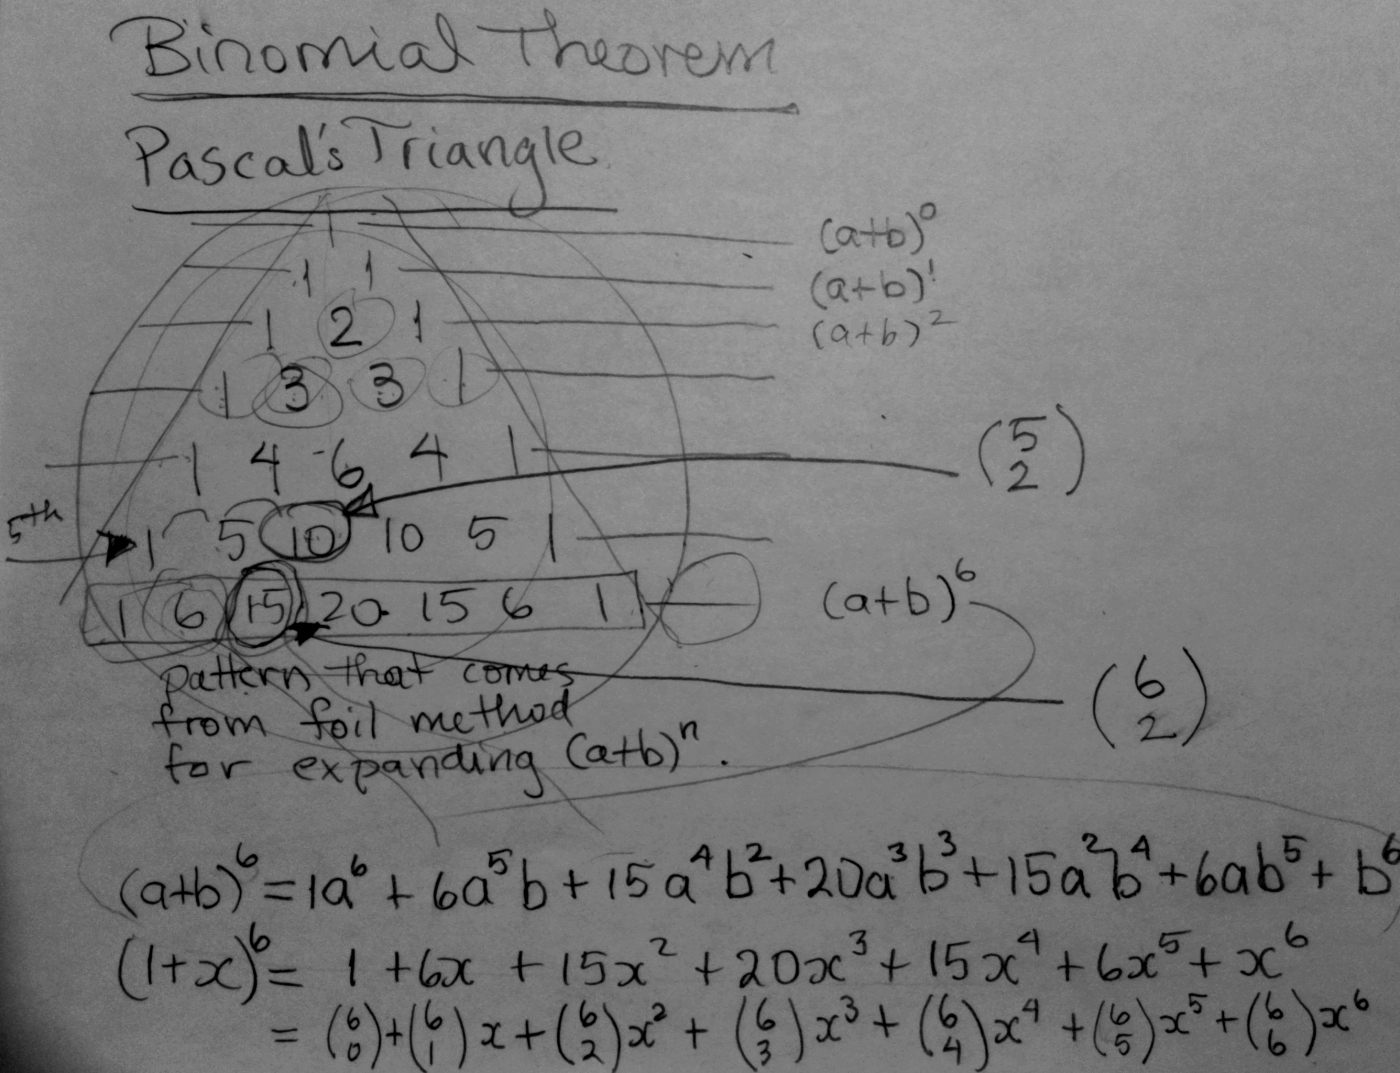 Binomial Theorem
Pascal's Triangle
1 (a+b)⁰
1 1 (a+b)¹
1 2 1 (a+b)²
1 3 3 1
1 4 6 4 1 (5 2)
5th 1 5 10 10 5 1
1 6 15 20 15 6 1 (a+b)⁶
(6 2)
pattern that comes
from foil method
for expanding (a+b)ⁿ.
(a+b)⁶ = 1a⁶ + 6a⁵b + 15a⁴b² + 20a³b³ + 15a²b⁴ + 6ab⁵ + b⁶
(1+x)⁶ = 1 + 6x + 15x² + 20x³ + 15x⁴ + 6x⁵ + x⁶
= (6 0) + (6 1)x + (6 2)x² + (6 3)x³ + (6 4)x⁴ + (6 5)x⁵ + (6 6)x⁶